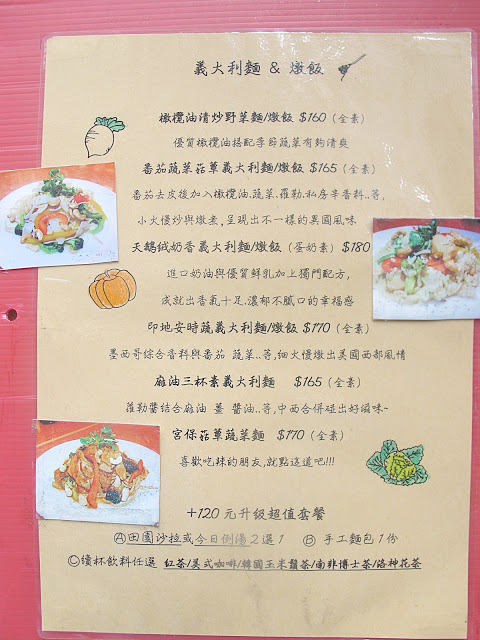 義大利麵 & 燉飯
橄欖油清炒野菜麵/燉飯 $160 (全素)
優質橄欖油搭配季節蔬菜有夠清爽
番茄蔬菜菇蕈義大利麵/燉飯 $165 (全素)
番茄去皮後加入橄欖油.蔬菜.羅勒.私房辛香料..等,
小火慢炒與燉煮,呈現出不一樣的異國風味
天鵝絨奶香義大利麵/燉飯 (蛋奶素) $180
進口奶油與優質鮮乳加上獨門配方,
成就出香氣十足,濃郁不膩口的幸福感
印地安時蔬義大利麵/燉飯 $170 (全素)
墨西哥綜合香料與番茄 蔬菜..等,細火慢燉出美國西部風情
麻油三杯素義大利麵 $165 (全素)
羅勒醬結合麻油 薑 醬油..等,中西合併碰出好滋味~
宮保菇蕈蔬菜麵 $170 (全素)
喜歡吃辣的朋友,就點這道吧!!!
+120 元升級超值套餐
Ⓐ田園沙拉或今日例湯2選1 Ⓑ 手工麵包1份
Ⓒ續杯飲料任選 紅茶/美式咖啡/韓國玉米鬚茶/南非博士茶/洛神花茶